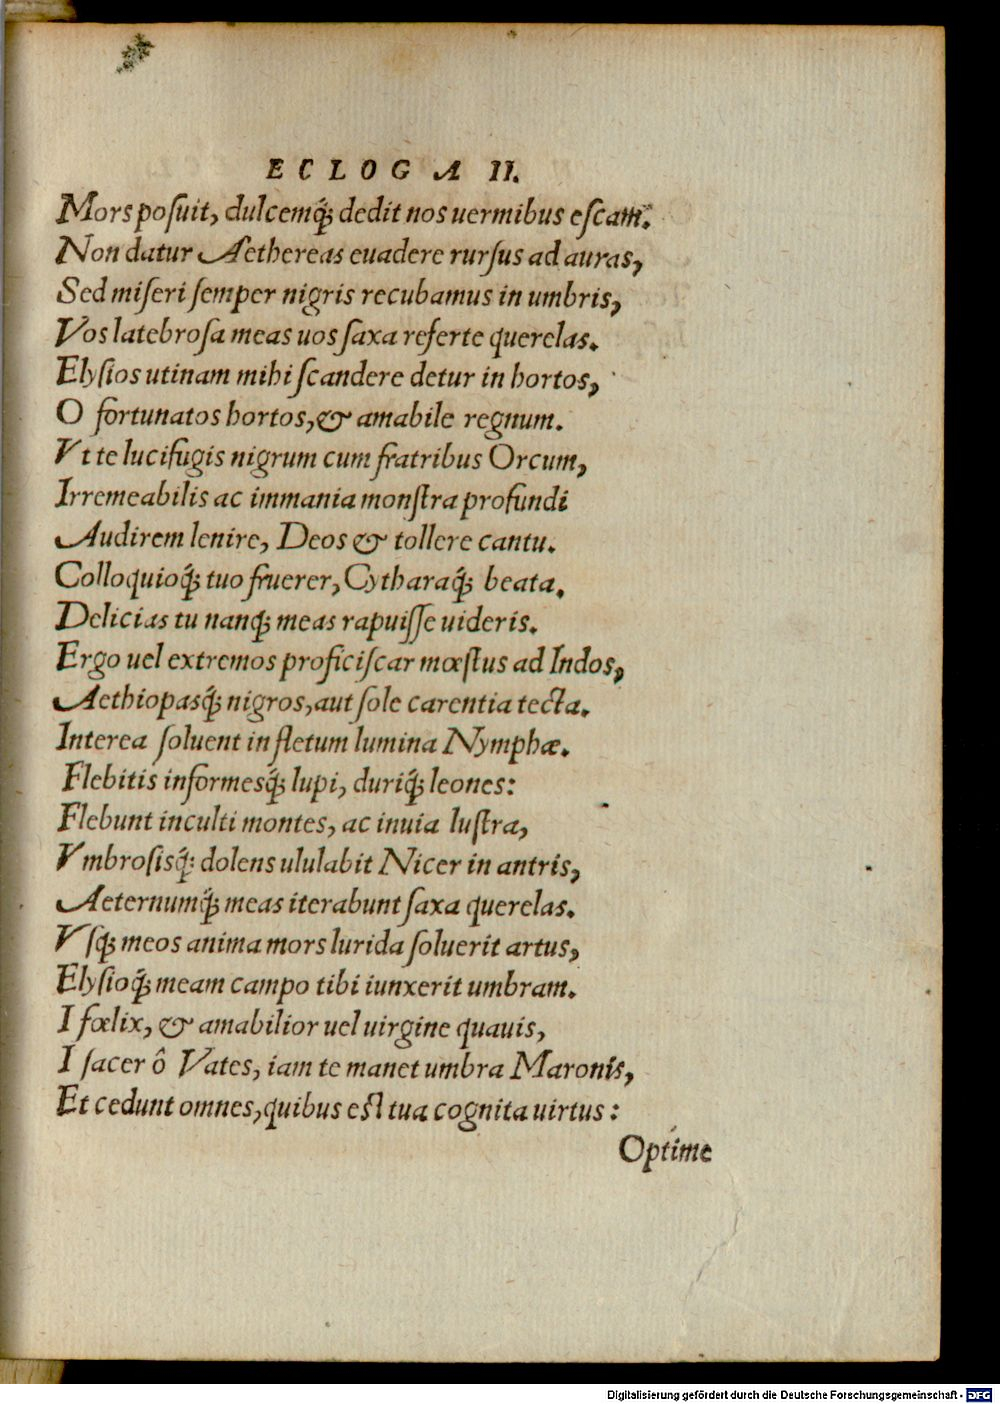 ECLOGA II.
Mors posuit, dulcemq́; dedit nos uermibus escam.
Non datur Aethereas euadere rursus ad auras,
Sed miseri semper nigris recubamus in umbris,
Vos latebrosa meas uos saxa referte querelas.
Elysios utinam mihi scandere detur in hortos,
O fortunatos hortos, & amabile regnum.
Vt te lucifugis nigrum cum fratribus Orcum,
Irremeabilis ac immania monstra profundi
Audirem lenire, Deos & tollere cantu.
Colloquioq́; tuo fruerer, Cytharaq́; beata.
Delicias tu nanq́; meas rapuisse uideris.
Ergo uel extremos proficiscar mœstus ad Indos,
Aethiopasq́; nigros, aut sole carentia tecta.
Interea soluent in fletum lumina Nymphæ.
Flebitis informesq́; lupi, duriq́; leones:
Flebunt inculti montes, ac inuia lustra,
Vmbrosisq́; dolens ululabit Nicer in antris,
Aeternumq́; meas iterabunt saxa querelas.
Vsq́; meos anima mors lurida soluerit artus,
Elysioq́; meam campo tibi iunxerit umbram.
I fœlix, & amabilior uel uirgine quauis,
I sacer ô Vates, iam te manet umbra Maronis,
Et cedunt omnes, quibus est tua cognita uirtus:
Optime
Digitalisierung gefördert durch die Deutsche Forschungsgemeinschaft - DFG